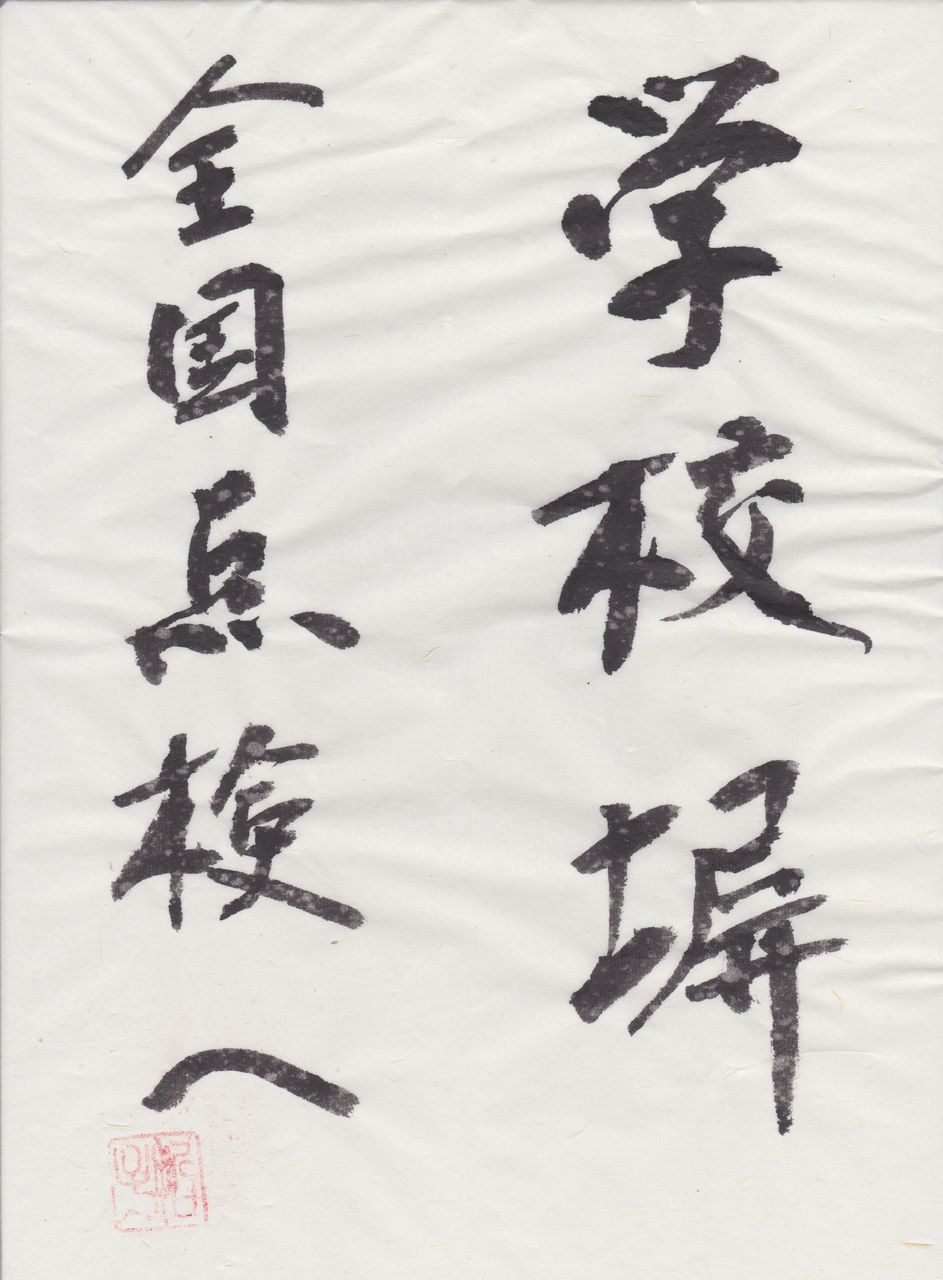 学校塀
全国点検へ